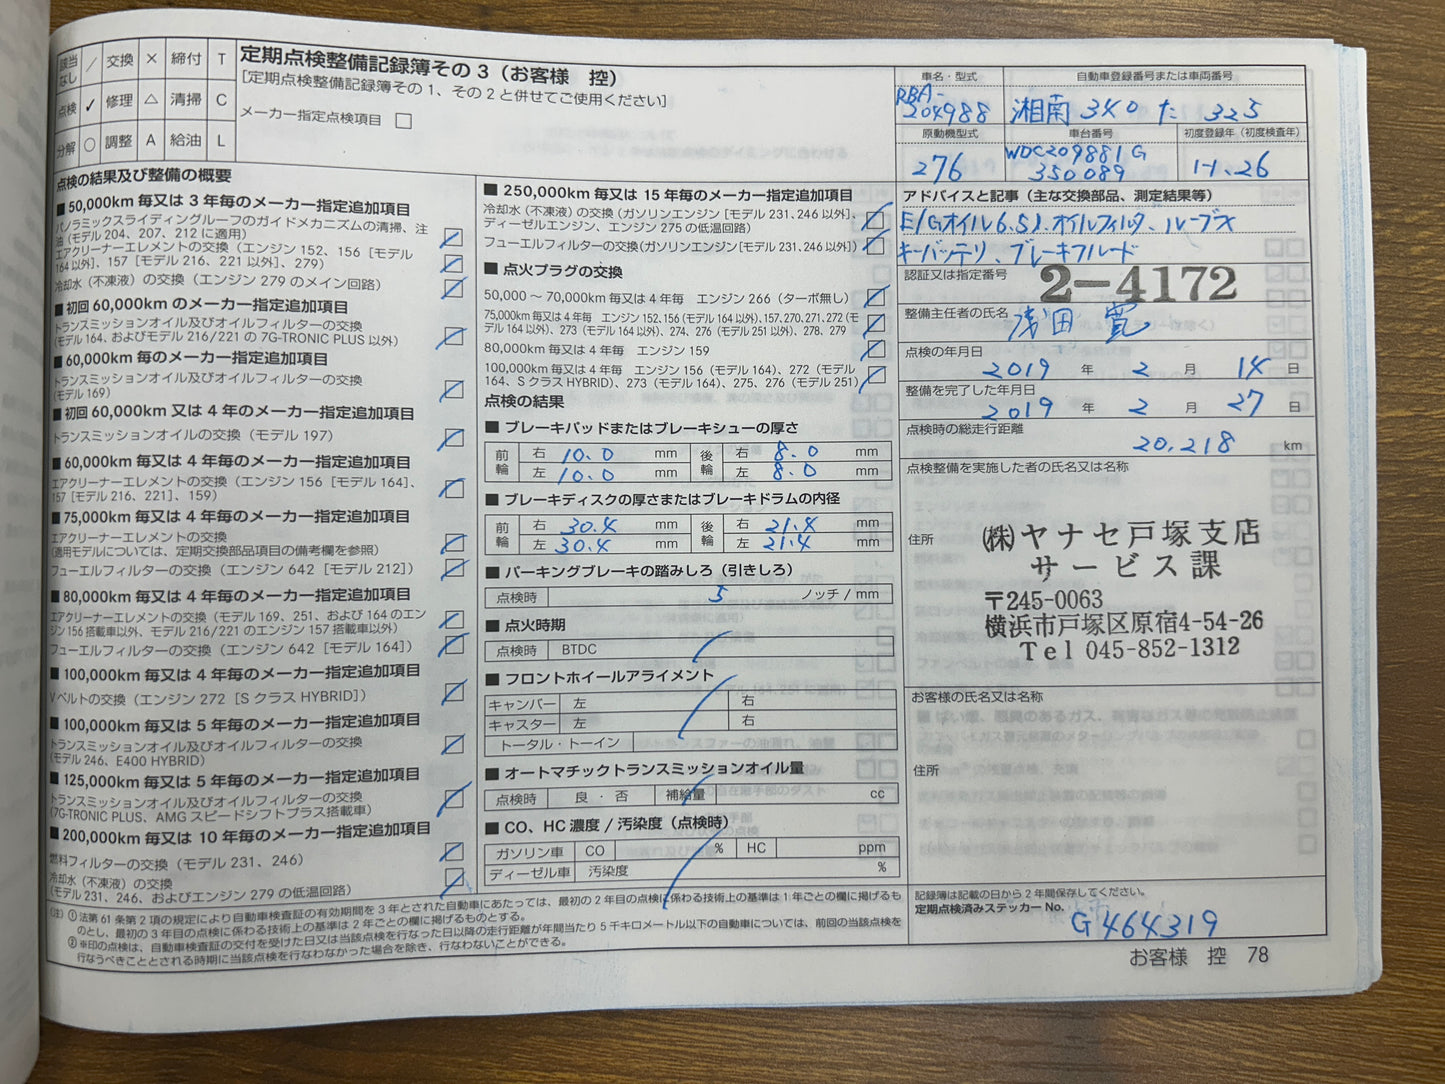 該当なし ／ 交換 × 締付 T
点検 ✓ 修理 △ 清掃 C
分解 ○ 調整 A 給油 L
定期点検整備記録簿その3（お客様　控）
［定期点検整備記録簿その1、その2と併せてご使用ください］
メーカー指定点検項目 □
点検の結果及び整備の概要
■ 50,000km 毎又は 3 年毎のメーカー指定追加項目
パノラミックスライディングルーフのガイドメカニズムの清掃、注
油（モデル 204、207、212 に適用）
エアクリーナーエレメントの交換（エンジン 152、156［モデル
164 以外］、157［モデル 216、221 以外］、279）
冷却水（不凍液）の交換（エンジン 279 のメイン回路）
■ 初回 60,000km のメーカー指定追加項目
トランスミッションオイル及びオイルフィルターの交換
（モデル 164、およびモデル 216/221 の 7G-TRONIC PLUS 以外）
■ 60,000km 毎のメーカー指定追加項目
トランスミッションオイル及びオイルフィルターの交換
（モデル 169）
■ 初回 60,000km 又は 4 年のメーカー指定追加項目
トランスミッションオイルの交換（モデル 197）
■ 60,000km 毎又は 4 年毎のメーカー指定追加項目
エアクリーナーエレメントの交換（エンジン 156［モデル 164］、
157［モデル 216、221］、159）
■ 75,000km 毎又は 4 年毎のメーカー指定追加項目
エアクリーナーエレメントの交換
（適用モデルについては、定期交換部品項目の備考欄を参照）
フューエルフィルターの交換（エンジン 642［モデル 212］）
■ 80,000km 毎又は 4 年毎のメーカー指定追加項目
エアクリーナーエレメントの交換（モデル 169、251、および 164 のエン
ジン 156 搭載車以外、モデル 216/221 のエンジン 157 搭載車以外）
フューエルフィルターの交換（エンジン 642［モデル 164］）
■ 100,000km 毎又は 4 年毎のメーカー指定追加項目
V ベルトの交換（エンジン 272［S クラス HYBRID］）
■ 100,000km 毎又は 5 年毎のメーカー指定追加項目
トランスミッションオイル及びオイルフィルターの交換
（モデル 246、E400 HYBRID）
■ 125,000km 毎又は 5 年毎のメーカー指定追加項目
トランスミッションオイル及びオイルフィルターの交換
（7G-TRONIC PLUS、AMG スピードシフトプラス搭載車）
■ 200,000km 毎又は 10 年毎のメーカー指定追加項目
燃料フィルターの交換（モデル 231、246）
冷却水（不凍液）の交換
（モデル 231、246、およびエンジン 279 の低温回路）
■ 250,000km 毎又は 15 年毎のメーカー指定追加項目
冷却水（不凍液）の交換（ガソリンエンジン［モデル 231、246 以外］、
ディーゼルエンジン、エンジン 275 の低温回路）
フューエルフィルターの交換（ガソリンエンジン［モデル 231、246 以外］）
■ 点火プラグの交換
50,000 〜 70,000km 毎又は 4 年毎　エンジン 266（ターボ無し）
75,000km 毎又は 4 年毎　エンジン 152、156（モデル 164 以外）、157、270、271、272（モ
デル 164 以外）、273（モデル 164 以外）、274、276（モデル 251 以外）、278、279
80,000km 毎又は 4 年毎　エンジン 159
100,000km 毎又は 4 年毎　エンジン 156（モデル 164）、272（モデル
164、S クラス HYBRID）、273（モデル 164）、275、276（モデル 251）
点検の結果
■ ブレーキパッドまたはブレーキシューの厚さ
前輪 右 10.0 mm 後輪 右 8.0 mm
左 10.0 mm 左 8.0 mm
■ ブレーキディスクの厚さまたはブレーキドラムの内径
前輪 右 30.4 mm 後輪 右 21.4 mm
左 30.4 mm 左 21.4 mm
■ パーキングブレーキの踏みしろ（引きしろ）
点検時 5 ノッチ / mm
■ 点火時期
点検時 BTDC
■ フロントホイールアライメント
キャンバー 左 右
キャスター 左 右
トータル・トーイン
■ オートマチックトランスミッションオイル量
点検時 良・否 補給量 cc
■ CO、HC 濃度 / 汚染度（点検時）
ガソリン車 CO % HC ppm
ディーゼル車 汚染度 %
車名・型式 自動車登録番号または車両番号
RBA-
204988 湘南 340 た 325
原動機型式 車台番号 初度登録年（初度検査年）
276 WDC209881G
350089 H.26
アドバイスと記事（主な交換部品、測定結果等）
E/Gオイル6.5l、オイルフィルタ、ルーブス
キーバッテリ、ブレーキフルード
認証又は指定番号 2-4172
整備主任者の氏名 浅田 寛
点検の年月日
2019 年 2 月 14 日
整備を完了した年月日
2019 年 2 月 27 日
点検時の総走行距離
20,218 km
点検整備を実施した者の氏名又は名称
住所
㈱ヤナセ戸塚支店
サービス課
〒245-0063
横浜市戸塚区原宿4-54-26
Tel 045-852-1312
お客様の氏名又は名称
住所
記録簿は記載の日から 2 年間保存してください。
定期点検済みステッカー No.
G464319
（注）① 法第 61 条第 2 項の規定により自動車検査証の有効期間を 3 年とされた自動車にあたっては、最初の 2 年目の点検に係わる技術上の基準は 1 年ごとの欄に掲げるも
のとし、最初の 3 年目の点検に係わる技術上の基準は 2 年ごとの欄に掲げるものとする。
② ※印の点検は、自動車検査証の交付を受けた日又は当該点検を行なった日以降の走行距離が年間当たり 5 千キロメートル以下の自動車については、前回の当該点検を
行なうべきこととされる時期に当該点検を行なわなかった場合を除き、行なわないことができる。
お客様　控　78